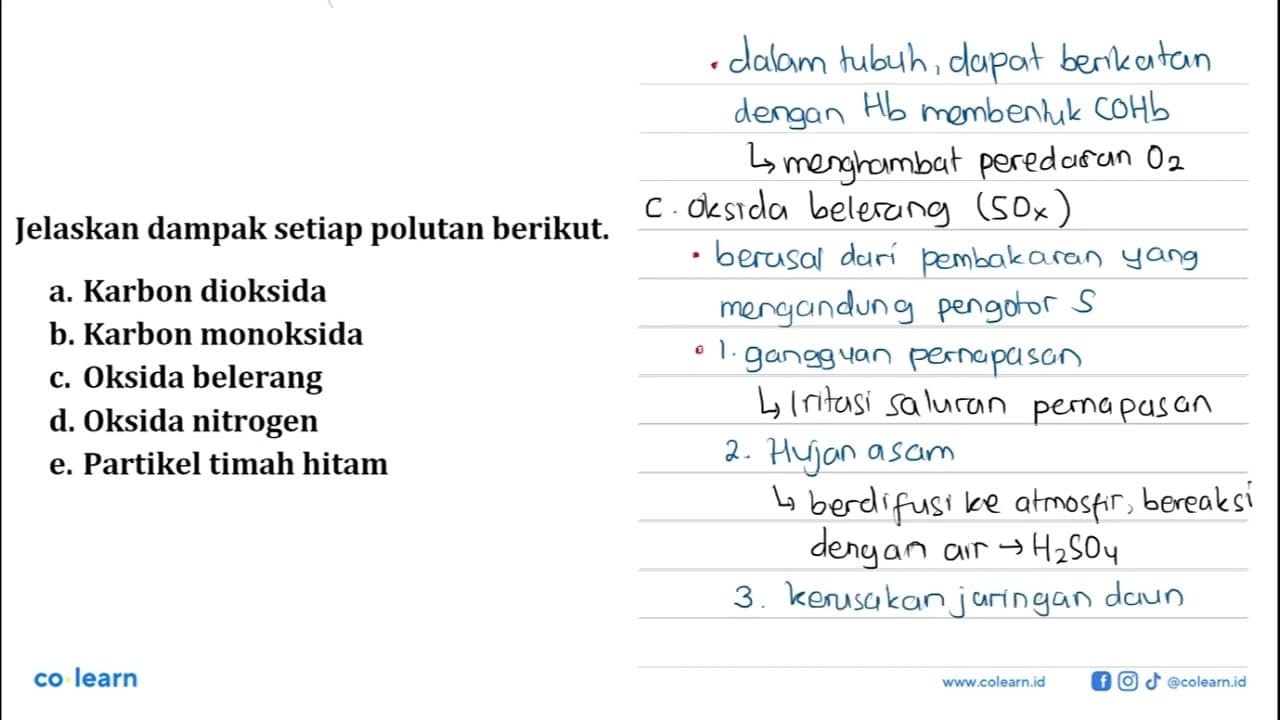 Jelaskan dampak setiap polutan berikut.
a. Karbon dioksida
b. Karbon monoksida
c. Oksida belerang
d. Oksida nitrogen
e. Partikel timah hitam
• dalam tubuh, dapat berikatan
dengan Hb membentuk COHb
↳ menghambat peredaran O₂
C. Oksida belerang (SOₓ)
• berasal dari pembakaran yang
mengandung pengotor S
• 1. gangguan pernapasan
↳ Iritasi saluran pernapasan
2. Hujan asam
↳ berdifusi ke atmosfir, bereaksi
dengan air → H₂SO₄
3. kerusakan jaringan daun
co learn
www.colearn.id
@colearn.id